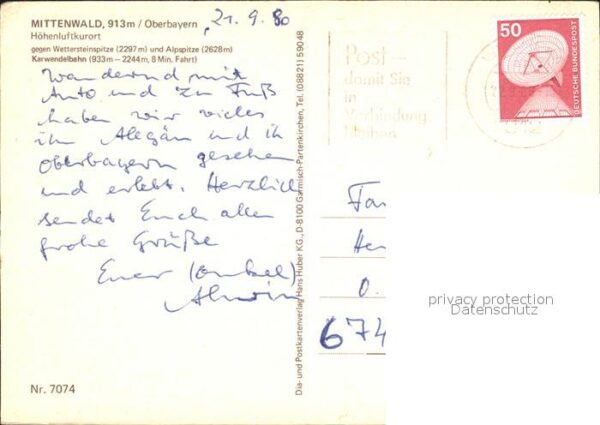 MITTENWALD, 913m / Oberbayern
Höhenluftkurort
gegen Wettersteinspitze (2297m) und Alpspitze (2628m)
Karwendelbahn (933m – 2244m, 8 Min. Fahrt)
21.9.80
Wandernd mit
Auto und zu Fuß
haben wir vieles
im Allgäu und in
Oberbayern gesehen
und erlebt. Herzlich
sendet Euch allen
frohe Grüße
Euer (Onkel)
Alwin
Nr. 7074
Dia- und Postkartenverlag Hans Huber KG., D-8100 Garmisch-Partenkirchen, Tel. (08821) 59048
Post –
damit Sie
in
Verbindung
bleiben
50
DEUTSCHE BUNDESPOST
Fa
He
O.
674
privacy protection
Datenschutz